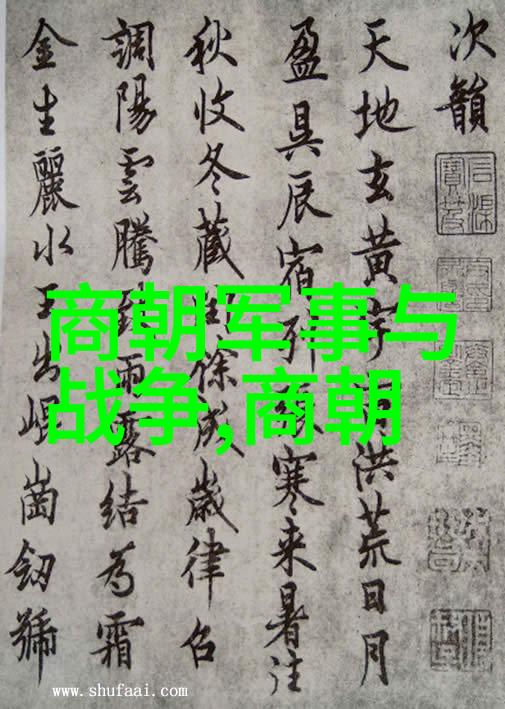 次韻
天地玄黄宇洪荒日月
盈昃辰宿寒来暑往
秋收冬藏餘成歲律召
調陽雲騰雨露結為霜
金生麗水玉出崐崗劒號
商朝军事与
战争,商朝
www.shufaai.com